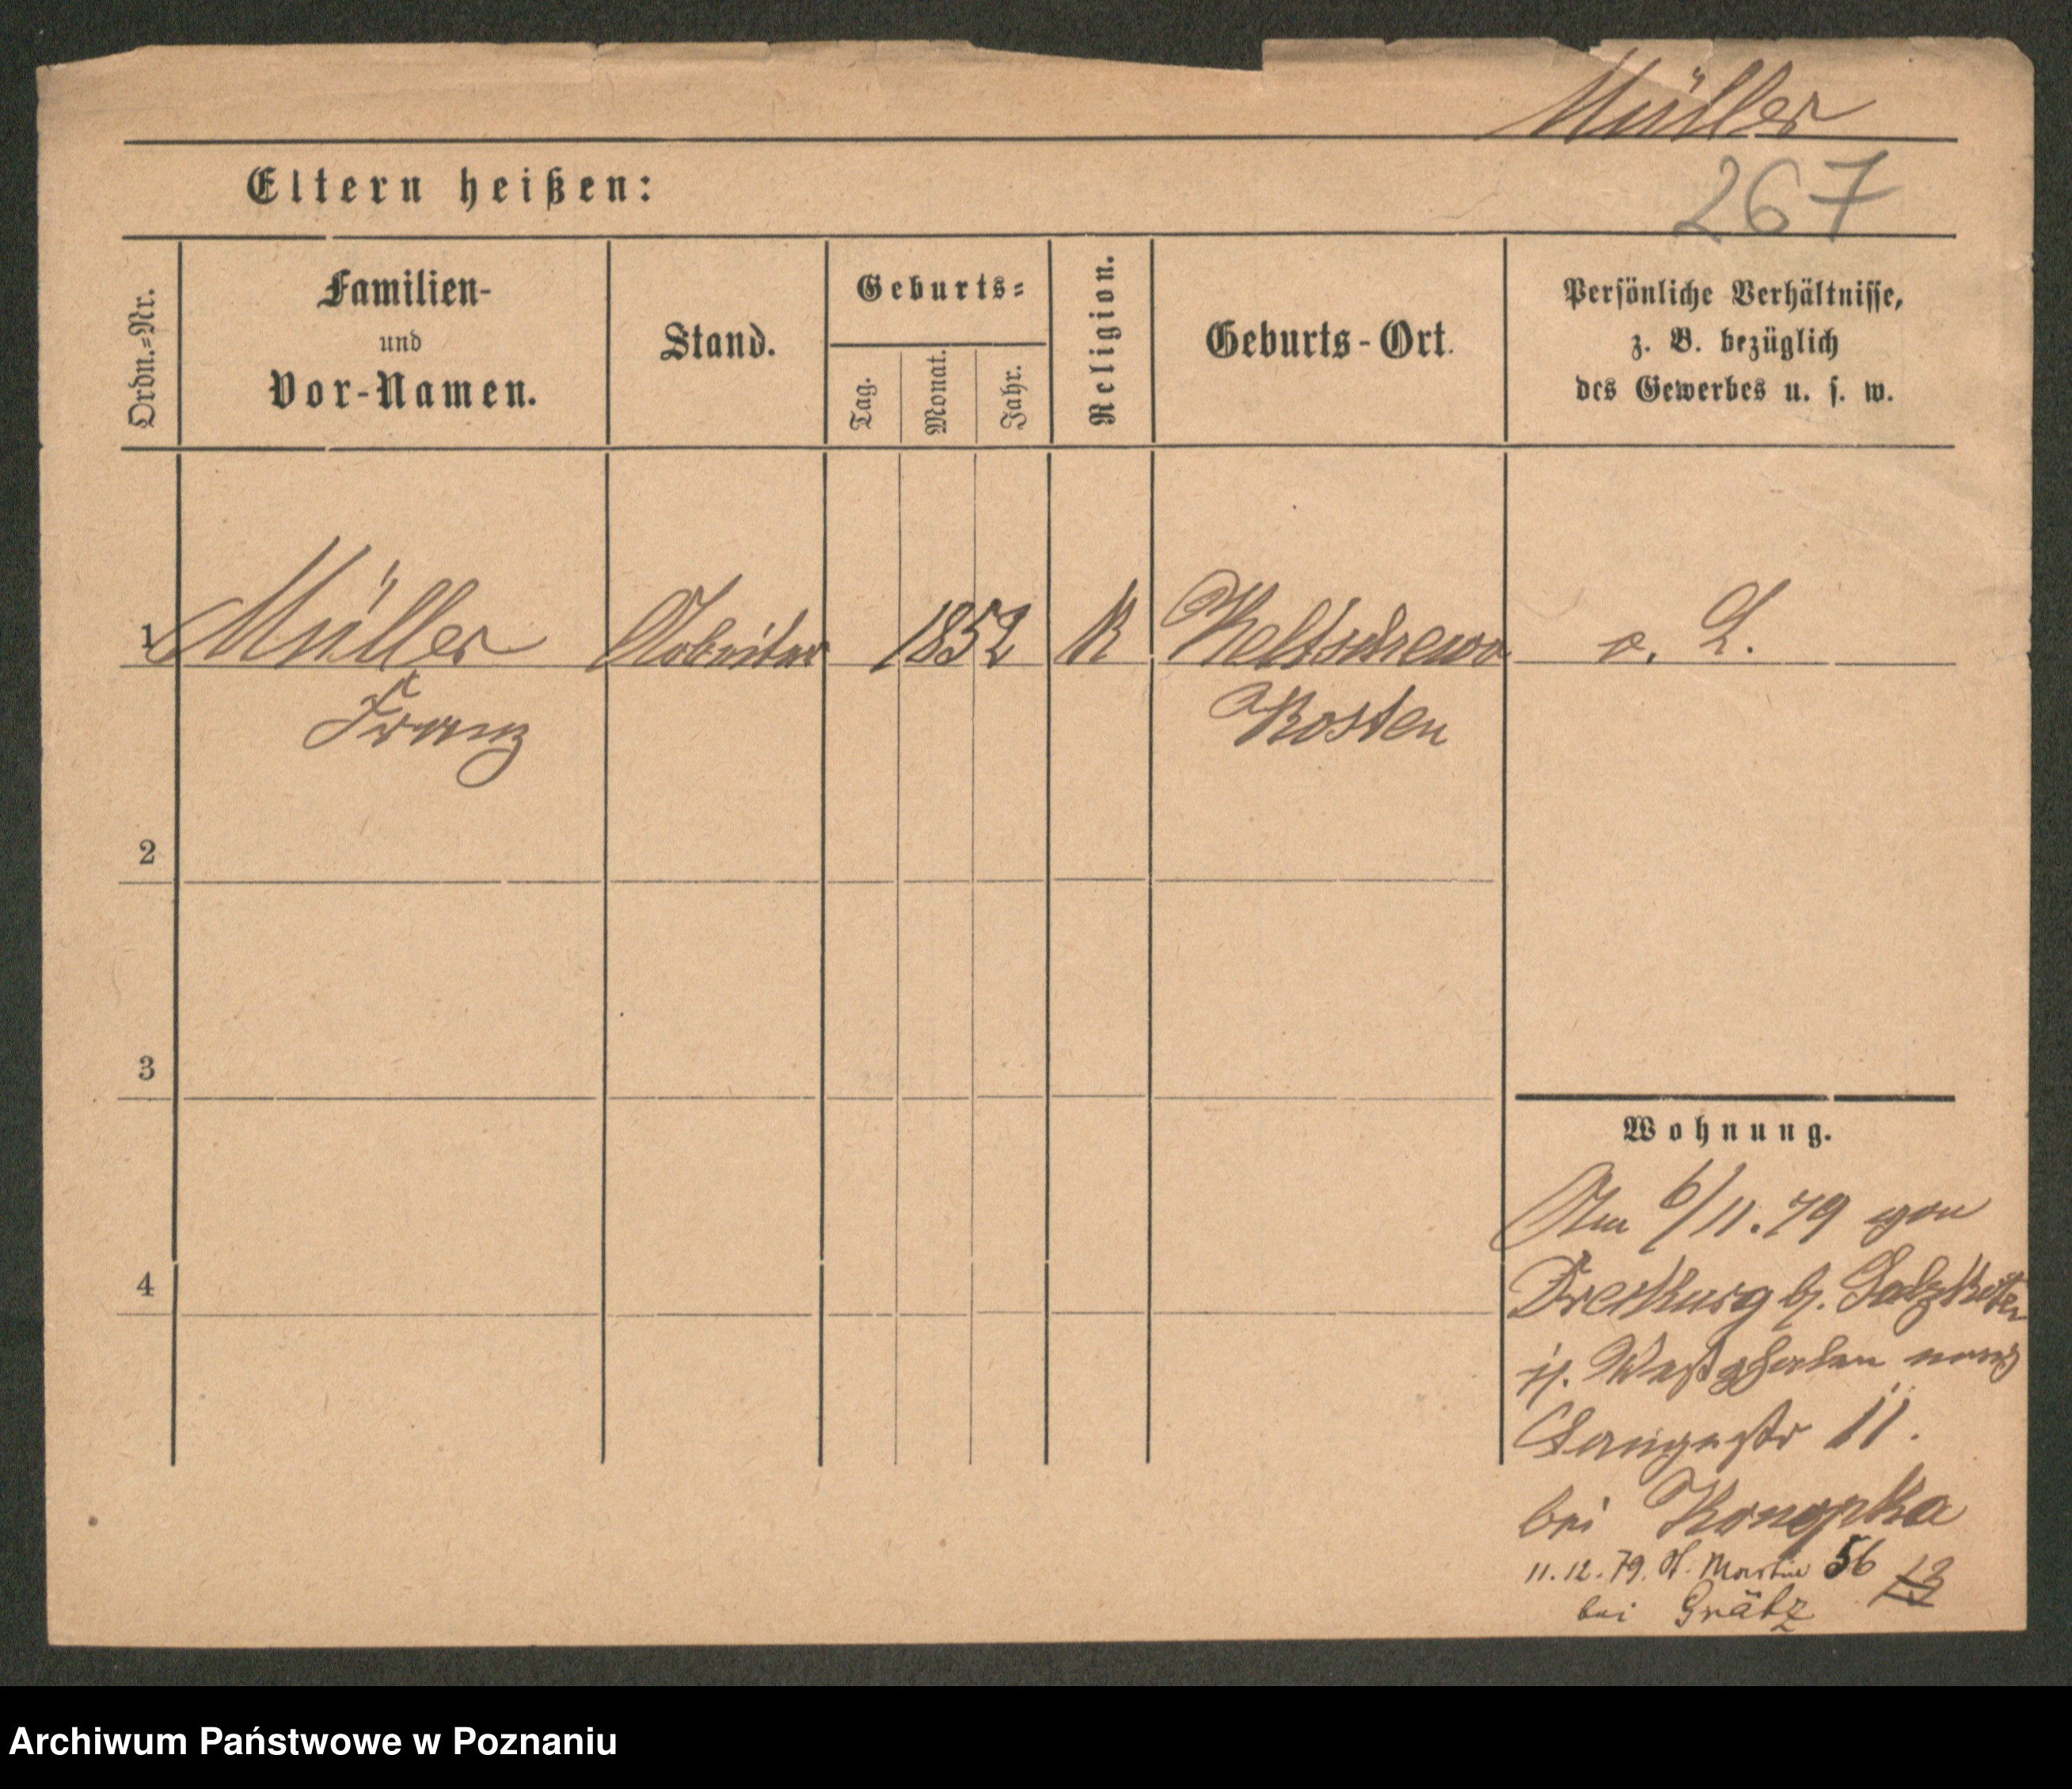 Müller
Eltern heißen:
267
Ordn.=Nr.
Familien-
und
Vor-Namen.
Stand.
Geburts=
Tag.
Monat.
Jahr.
Religion.
Geburts-Ort.
Persönliche Verhältnisse,
z. B. bezüglich
des Gewerbes u. s. w.
1 Müller 1852 K o. L.
Franz Kosten
2
3
4
Wohnung.
Am 6/11.79 von
b. Salzkotten
i. Westphalen nach
Langestr 11.
bei Konopka
11.12.79. St. Martin 56 13
bei Grätz
Archiwum Państwowe w Poznaniu